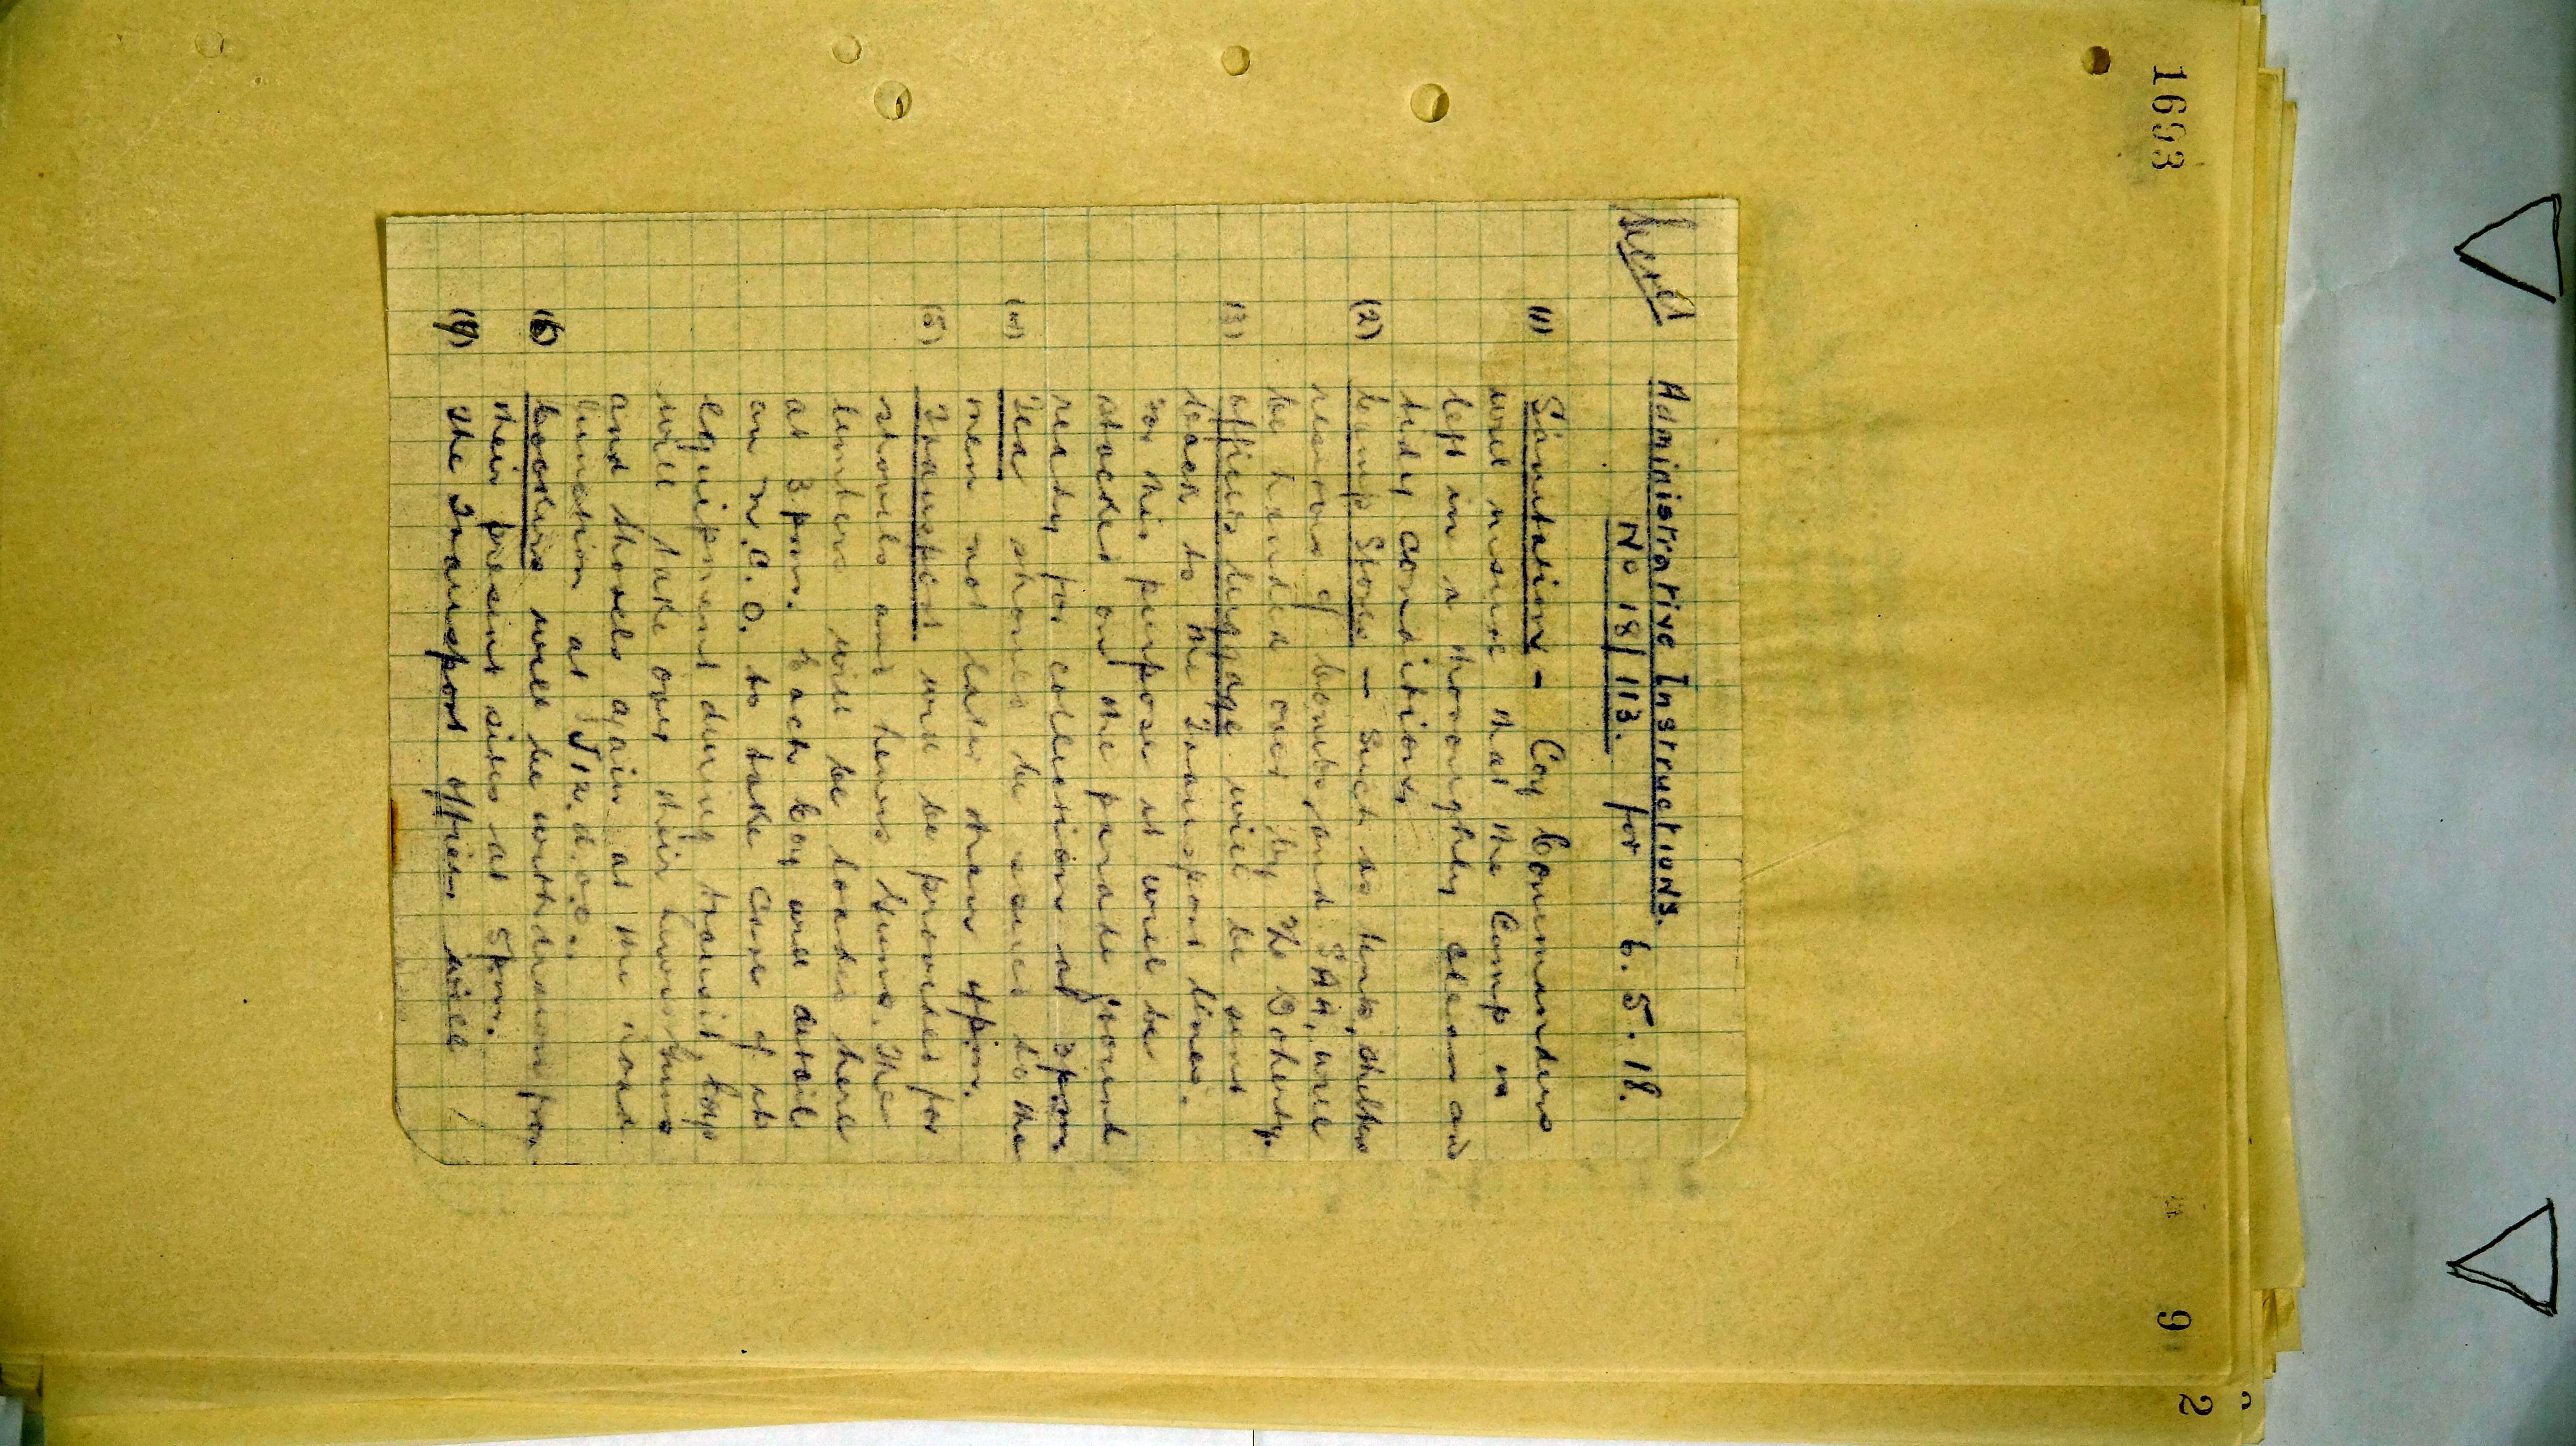 1693
Administrative Instructions.
No 18/113. for 6.5.18.
(1) Sanitation - Coy Commanders
will ensure that the Camp is
left in a thoroughly clean and
tidy condition.
(2) Camp Stores - Such as tents, shelters
reserve of bombs, and SAA, will
be handed over by
(3) Officers luggage will be sent
back to the Transport lines.
For this purpose it will be
stacked on the parade ground
ready for collection at 3 pm.
(4) Teas should be served to the
men not later than 4 pm.
(5) Transport will be provided for
shovels and Lewis Guns. The
limbers will be loaded here
at 3 pm. Each Coy will detail
an N.C.O. to take care of its
equipment during transit. Coys
will take over their Lewis Guns
and shovels again at the road
junction at
(6) Cookers will be withdrawn from
their present sites at 5 pm.
(7) The Transport Officer will
9
2